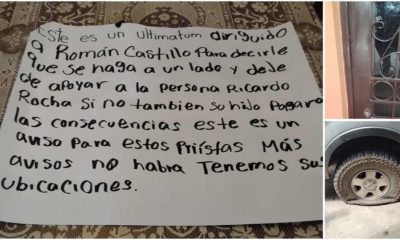 Este es un ultimatum diriguido
a Román Castillo Para decirle
que se haga a un lado y deje
de apoyar a la persona Ricardo
Rocha Si no tambien su hijo Pagara
las consecuencias este es un
aviso Para estos Priístas Más
avisos no habra Tenemos sus
ubicaciones.